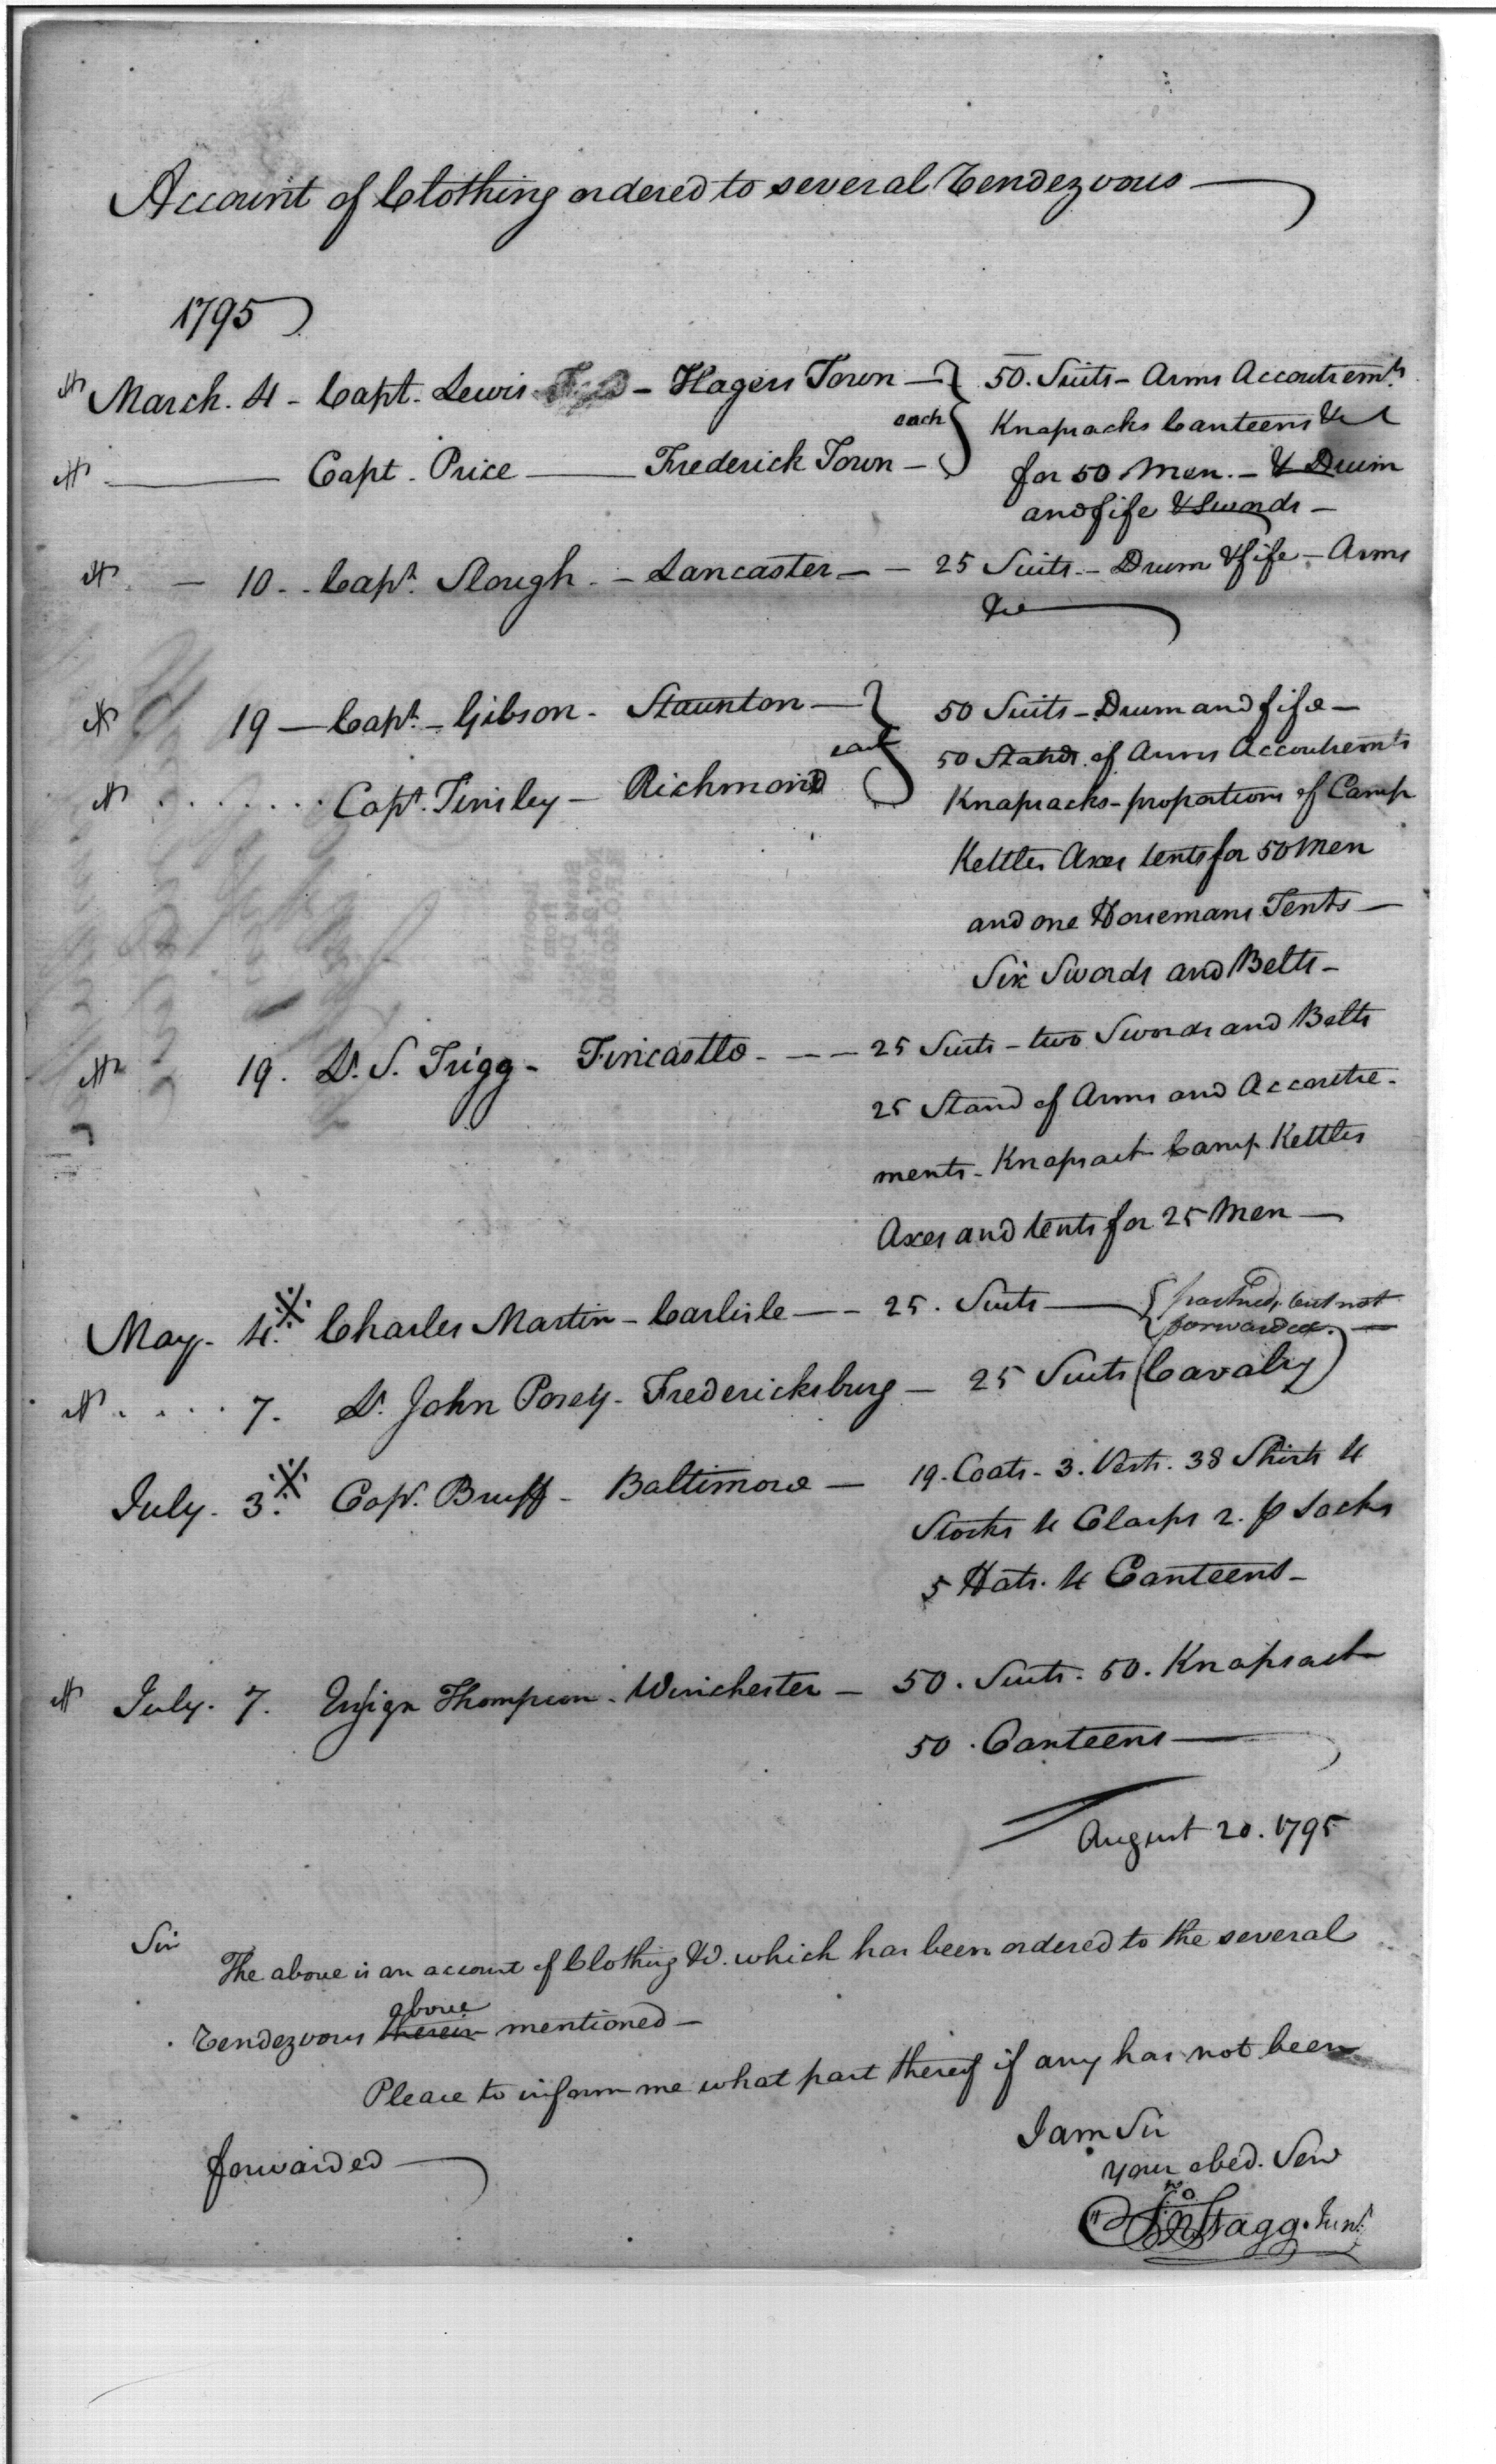 Account of Clothing ordered to several Rendezvous
1795
March. 4 - Capt. Lewis - Hagers Town - 50. Suits - Arms Accoutremts.
each Knapsacks Canteens &c
Capt. Price Frederick Town - for 50 Men. - & Drum
and fife & Swords -
10. Capt. Slough - Lancaster - 25 Suits - Drum & fife - Arms
&c
19 - Capt. - Gibson - Staunton - 50 Suits - Drum and fife -
each 50 Stands of Arms Accoutremts
Capt. Tinsley - Richmond Knapsacks - proportions of Camp
Kettles Axes tents for 50 Men
and one Horsemans Tents -
Six Swords and Belts -
19. Lt. S. Trigg - Fincastle - 25 Suits - two Swords and Belts
25 Stand of Arms and Accoutre-
ments - Knapsack Camp Kettles
Axes and tents for 25 Men -
May - 4. Charles Martin - Carlisle - 25. Suits packed, but not
forwarded. -
7. Lt. John Posey - Fredericksburg - 25 Suits (Cavalry)
July. 3. Capt. Bruff - Baltimore - 19. Coats - 3. Vests. 38 Shirts 4
Stocks 4 Clasps 2. p Socks
5 Hats. 4 Canteens -
July. 7. Ensign Thompson - Winchester - 50. Suits. 50. Knapsack
50. Canteens
August 20. 1795
Sir
The above is an account of Clothing &c. which has been ordered to the several
above
Rendezvous therein mentioned -
Please to inform me what part thereof if any has not been
forwarded
I am Sir
your obed. Serv
Jno Stagg. Junr.